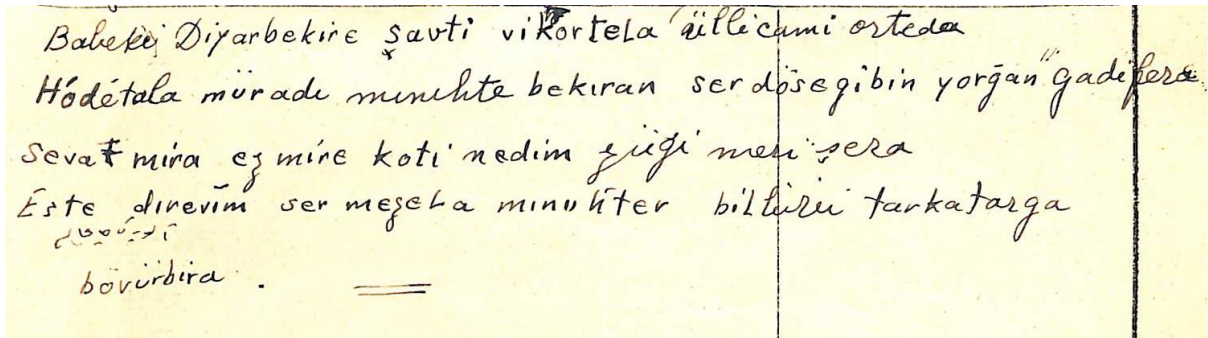 Babeki Diyarbekire şavti vikortela üllicami ortede
Hódétala müradı minuhte bekıran ser döşegibin yorğan "gadifera
sevat mira ez mire koti nedim güği meri şera
Este direvim ser mezela minuhter bilbüri tarkatarga
bövürbira .